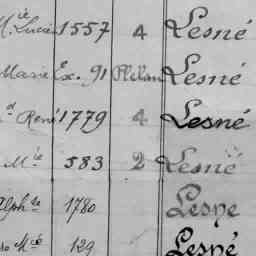 Mie Lucie 1557 4 Lesné
Marie Ex. 91 Lesné
d René 1779 4 Lesné
Mie 583 2 Lesné
Alphse 1780 Lesne
Mcé 129 Lesné